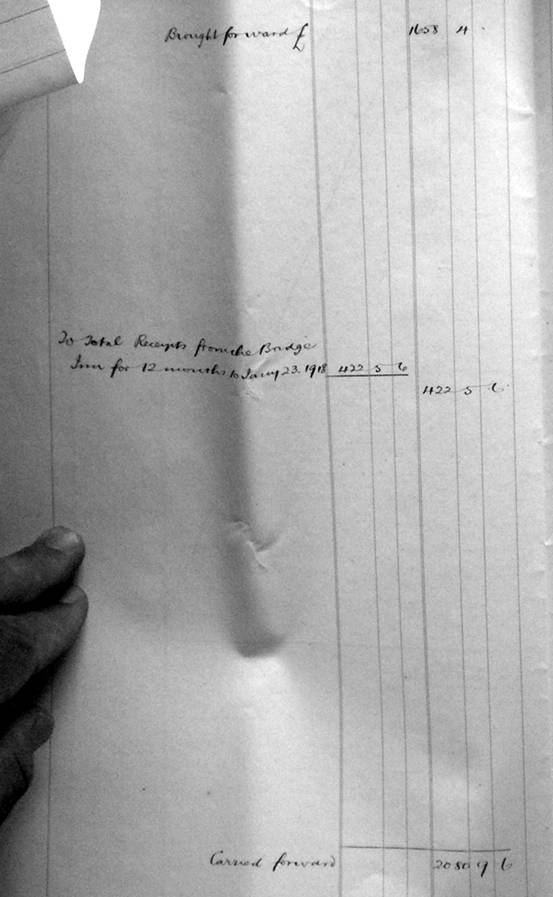 Brought forward £ 1658 4 .
To Total Receipts from the Bridge
Inn for 12 months to Jany 23. 1918 422 5 6
422 5 6
Carried forward 2080 9 6